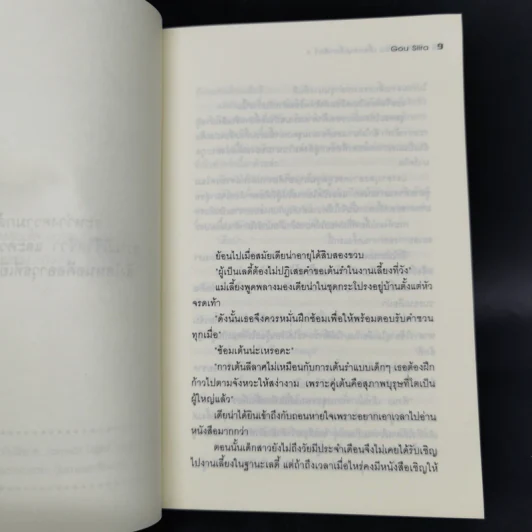 Gau Sira 9
ย้อนไปเมื่อสมัยเดียน่าอายุได้สิบสองขวบ
"ผู้เป็นเลดี้ต้องไม่ปฏิเสธคำขอเต้นรำในงานเลี้ยงที่วัง"
แม่เลี้ยงพูดพลางมองเดียน่าในชุดกระโปรงอยู่บ้านตั้งแต่หัว
จรดเท้า
"ดังนั้นเธอจึงควรหมั่นฝึกซ้อมเพื่อให้พร้อมตอบรับคำชวน
ทุกเมื่อ"
"ซ้อมเต้นน่ะเหรอคะ"
"การเต้นลีลาศไม่เหมือนกับการเต้นรำแบบเด็กๆ เธอต้องฝึก
ก้าวไปตามจังหวะให้สง่างาม เพราะคู่เต้นคือสุภาพบุรุษที่โตเป็น
ผู้ใหญ่แล้ว"
เดียน่าได้ยินเข้าถึงกับถอนหายใจเพราะอยากเอาเวลาไปอ่าน
หนังสือมากกว่า
ตอนนั้นเด็กสาวยังไม่ถึงวัยมีประจำเดือนจึงไม่เคยได้รับเชิญ
ไปงานเลี้ยงในฐานะเลดี้ แต่ถ้าถึงเวลาเมื่อไหร่คงมีหนังสือเชิญให้